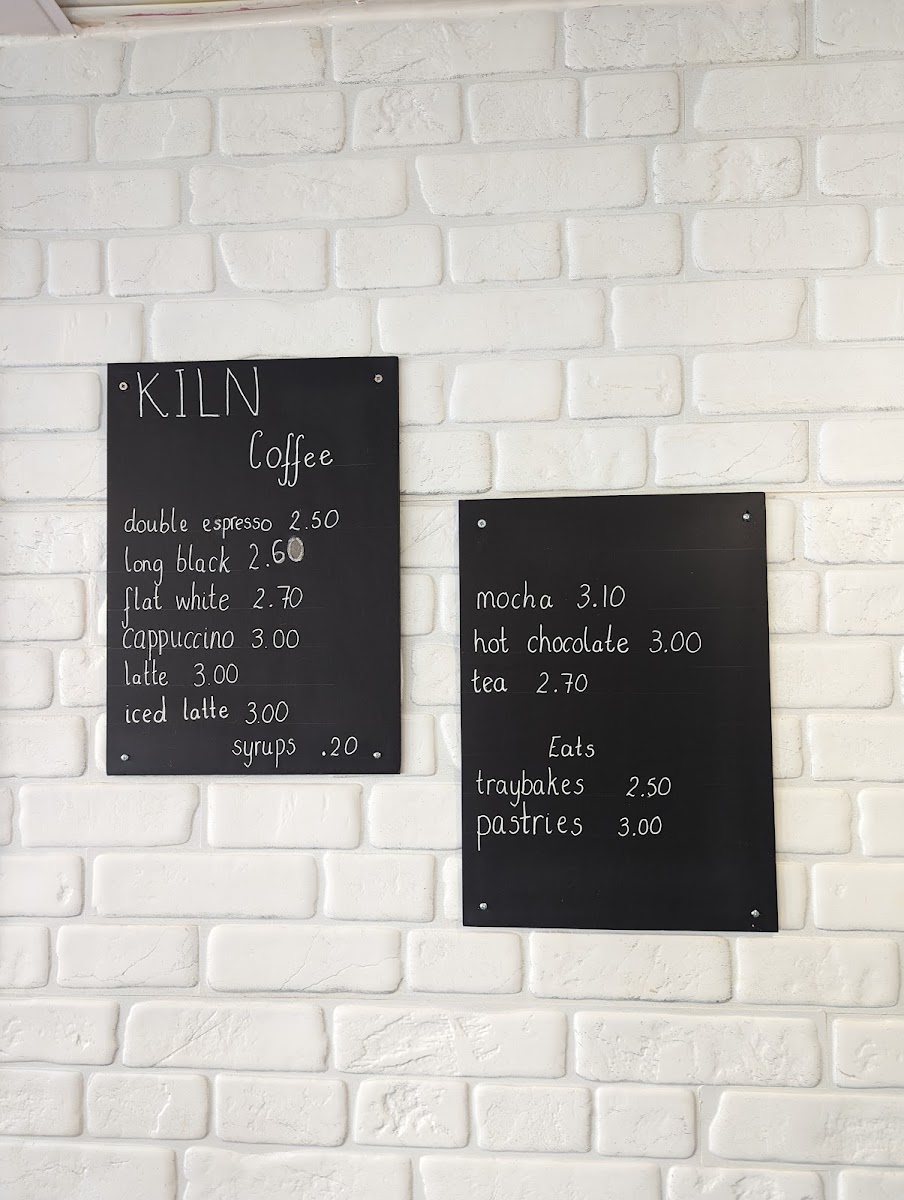 KILN
Coffee
double espresso 2.50
long black 2.60
flat white 2.70
cappuccino 3.00
latte 3.00
iced latte 3.00
syrups .20
mocha 3.10
hot chocolate 3.00
tea 2.70
Eats
traybakes 2.50
pastries 3.00